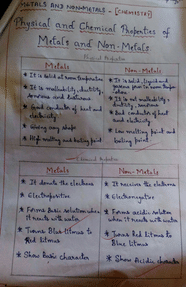 METALS AND NON-METALS - [CHEMISTRY]
Physical and Chemical Properties of
Metals and Non-Metals
Physical Properties
Metals
* It is solid at room temperature
* It is malleability, ductility,
sonorous and lustrous
* Good conductor of heat and
electricity
* High melting and boiling point
Non-Metals
* It is solid, liquid and
gaseous form in room temp
* It is not malleability,
ductility, sonorous
* Bad conductor of heat
and electricity
* Low melting point and
boiling point
Chemical Properties
Metals
* It donate the electrons
* Electropositive
* Forms Basic solution when
it reacts with water
* Turns Blue litmus to
Red litmus
* Show Basic character
Non-Metals
* It receive the electrons
* Electronegative
* Forms acidic solution
when it reacts with water
* Turns Red litmus to
Blue litmus
* Show Acidic character